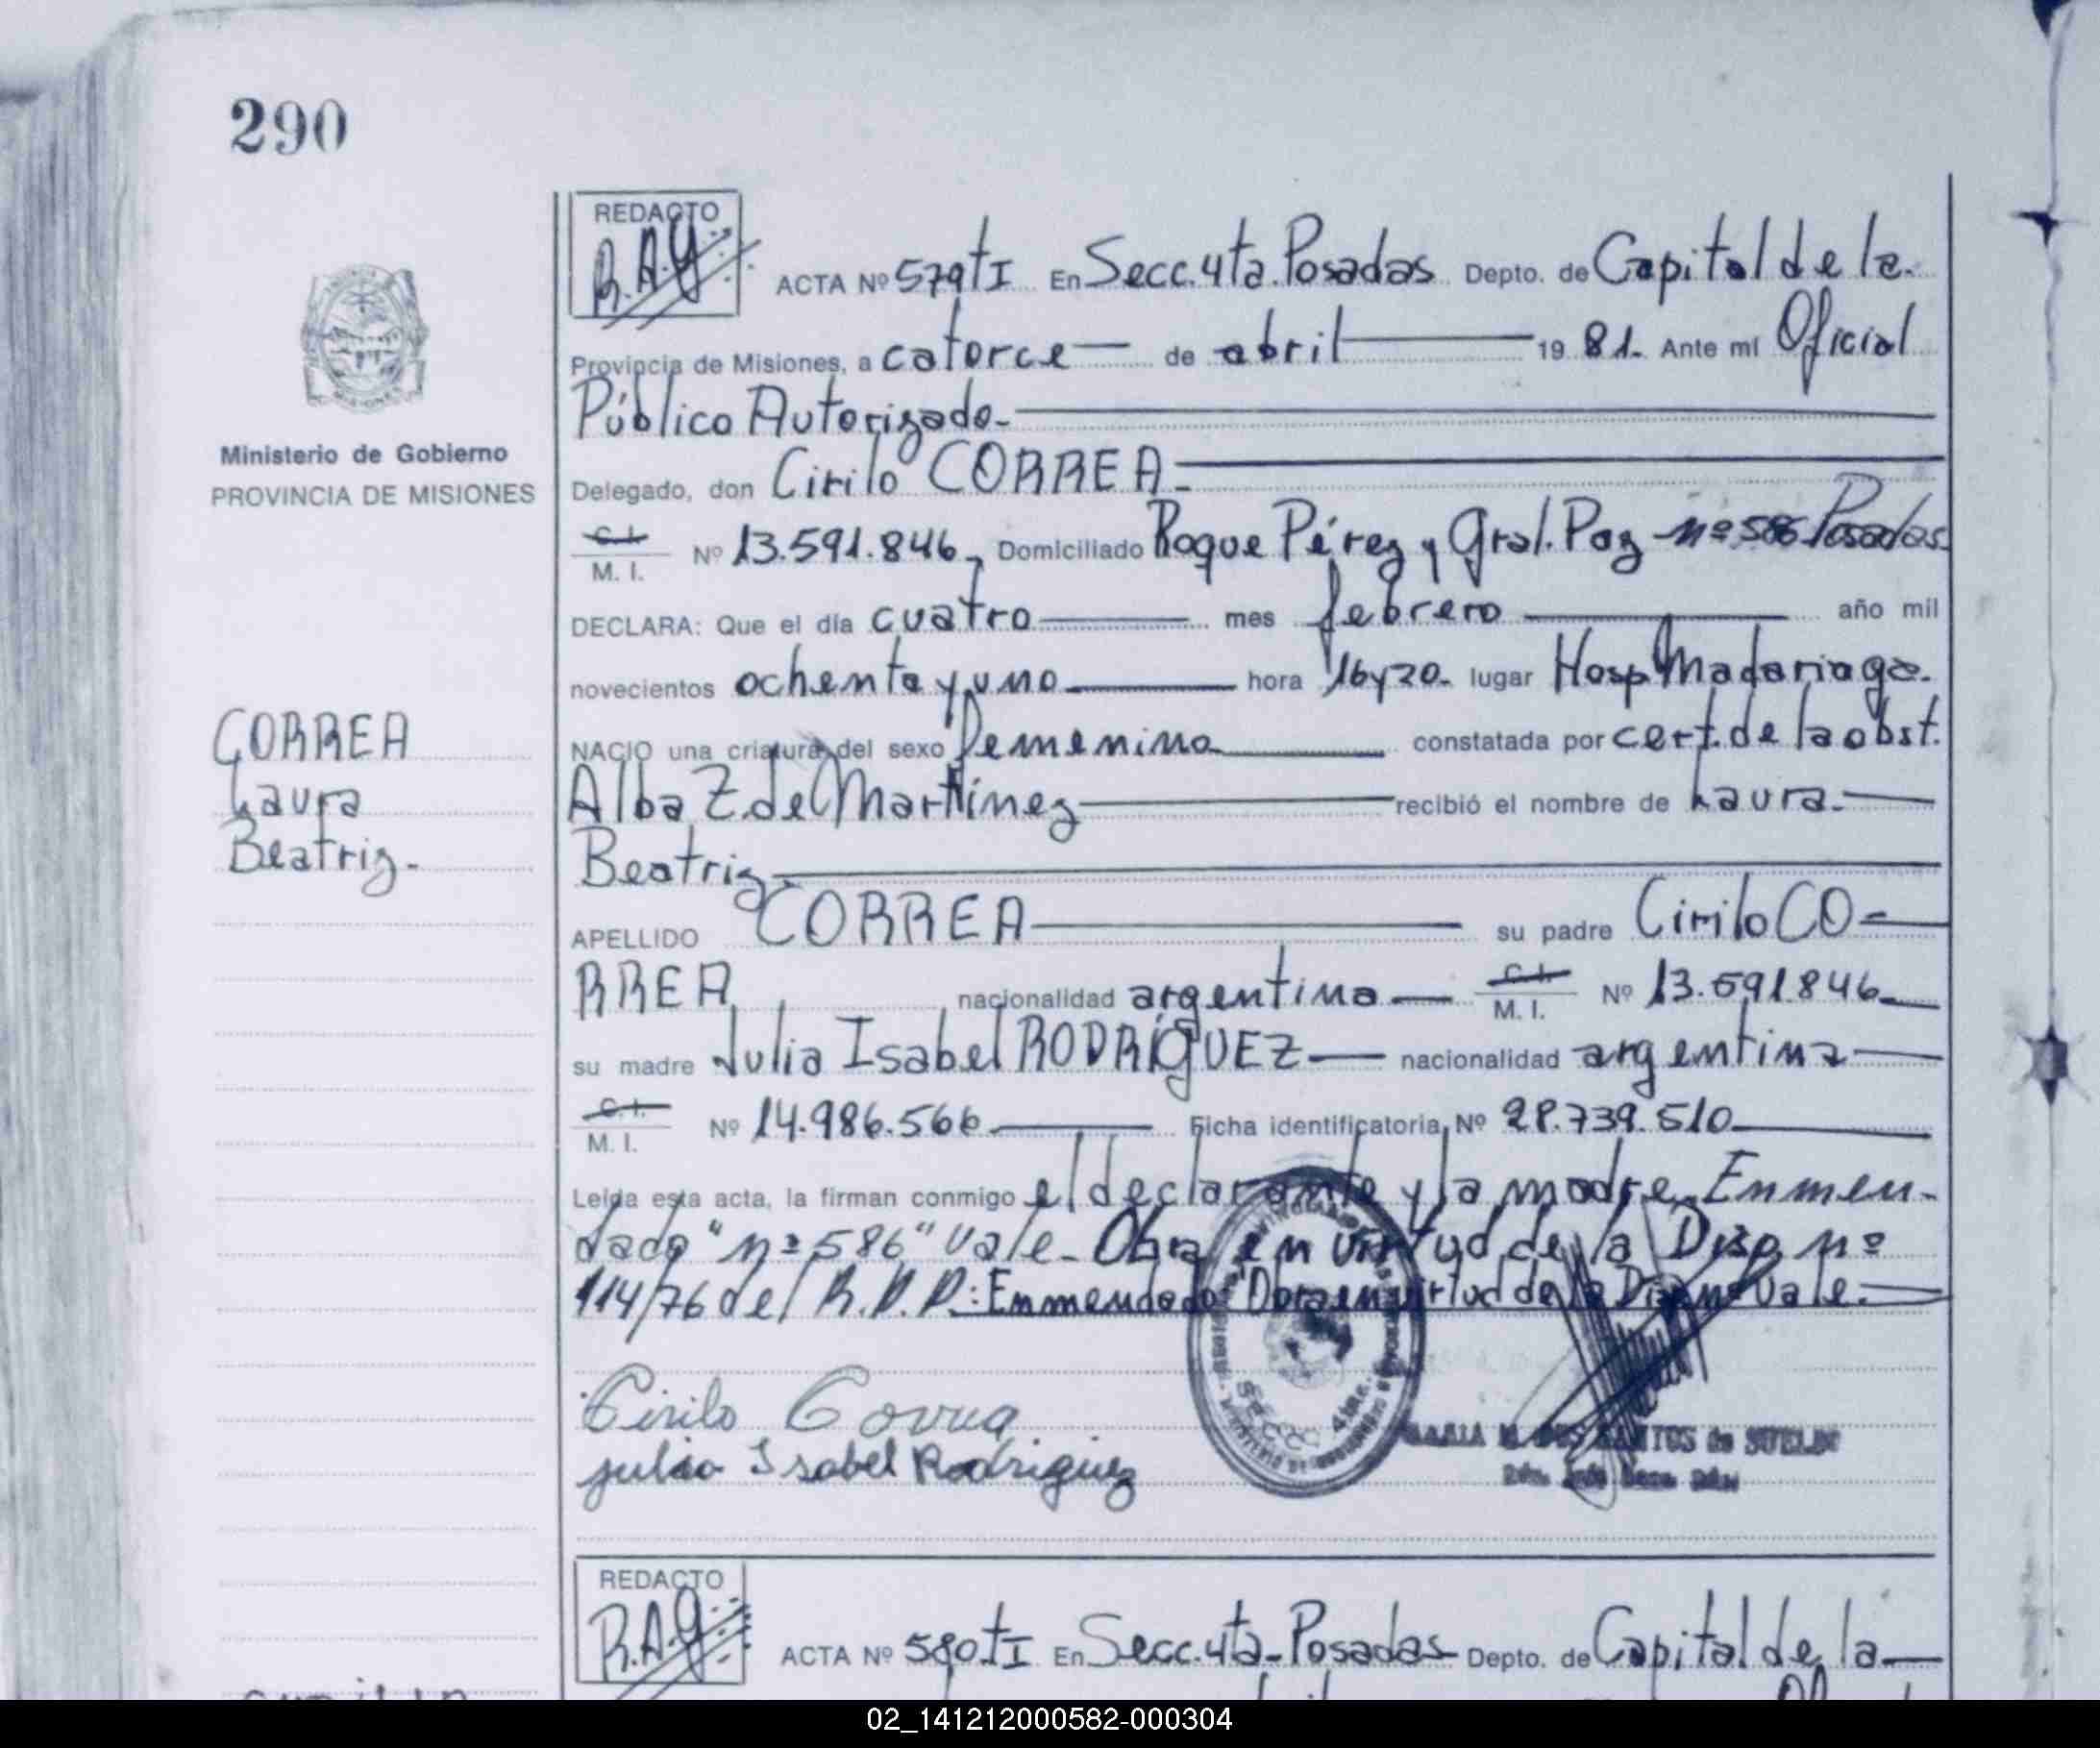 290
REDACTO
R.A.G
ACTA Nº 579 tI En Secc. 4ta. Posadas Depto. de Capital de la
Provincia de Misiones, a catorce de abril 19 81. Ante mi Oficial
Público Autorizado-
Ministerio de Gobierno
PROVINCIA DE MISIONES
Delegado, don Cirilo CORREA
C.I. M. I. Nº 13.591.846, Domiciliado Roque Pérez y Gral. Paz nº 586 Posadas
DECLARA: Que el día cuatro mes febrero año mil
novecientos ochenta y uno hora 16y20- lugar Hosp Madariaga.
CORREA
Laura
Beatriz.
NACIO una criatura del sexo femenino constatada por cert. de la obst.
Alba Z. de Martínez recibió el nombre de Laura
Beatriz
APELLIDO CORREA su padre Cirilo CO-
RREA nacionalidad argentina C.I. M. I. Nº 13.591846
su madre Julia Isabel RODRÍGUEZ nacionalidad argentina
C.I. M. I. Nº 14.986.566 Ficha identificatoria Nº 28.739.510
Leída esta acta, la firman conmigo el declarante y la madre. Enmen-
dado "nº 586" Vale- Obra en virtud de la Disp nº
114/76 del R.P.P.: Enmendado "Obra en virtud de la Disp nº Vale.
Cirilo Correa
julia Isabel Rodriguez
SECCC 4ta.
SANTOS de SUELDO
REDACTO
R.A.G
ACTA Nº 580 tI En Secc. 4ta- Posadas Depto. de Capital de la
02_141212000582-000304